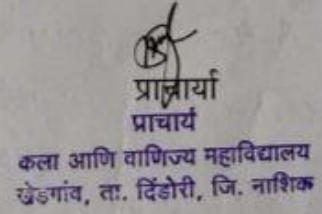 प्राचार्या
प्राचार्य
कला आणि वाणिज्य महाविद्यालय
खेडगांव, ता. दिंडोरी, जि. नाशिक